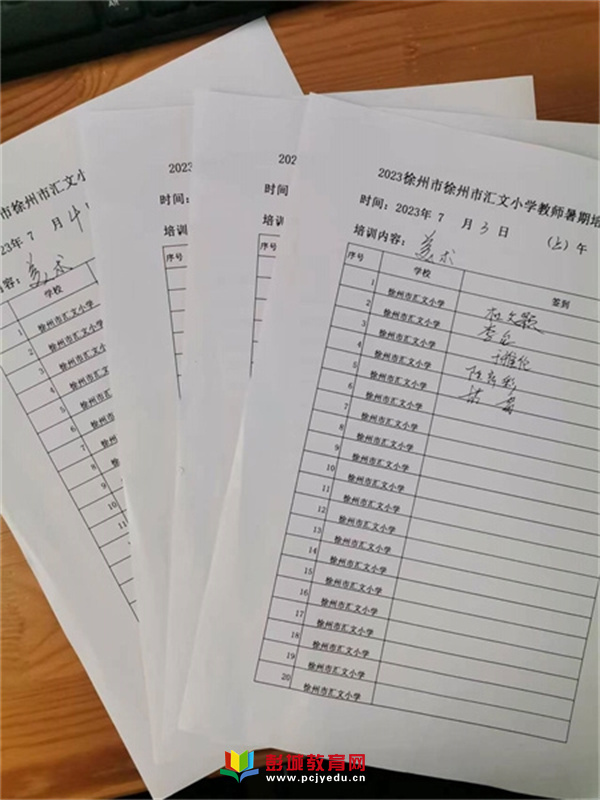 2023徐州市徐州市汇文小学教师暑期培
时间：2023年 7 月 3 日 （上）午
培训内容：美术
序号 学校 签到
1 徐州市汇文小学 杜文颖
2 徐州市汇文小学
3 徐州市汇文小学
4 徐州市汇文小学
5 徐州市汇文小学
6 徐州市汇文小学
7 徐州市汇文小学
8 徐州市汇文小学
9 徐州市汇文小学
10 徐州市汇文小学
11 徐州市汇文小学
12 徐州市汇文小学
13 徐州市汇文小学
14 徐州市汇文小学
15 徐州市汇文小学
16 徐州市汇文小学
17 徐州市汇文小学
18 徐州市汇文小学
19 徐州市汇文小学
20 徐州市汇文小学
202
时间：
培训内
序号
2023
时间：
培训内
序号
市徐州市汇文小
23年 7 月 4
容：美术
学校
1 徐州市汇文小学
2 徐州市汇文小学
3 徐州市汇文小学
4 徐州市汇文小学
5 徐州市汇文小学
6 徐州市汇文小学
7 徐州市汇文小
8 徐州市汇文
9 徐州市汇
10 徐州市
11
彭城教育网
www.pcjyedu.cn